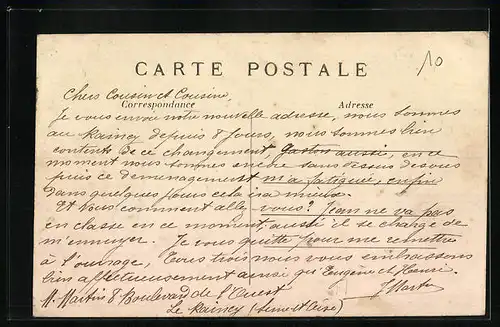 10
CARTE POSTALE
Chers Cousin et Cousine,
Correspondance Adresse
Je vous envoi notre nouvelle adresse, nous sommes
au Raincy depuis 8 jours, nous sommes bien
contents de ce changement Gaston aussi, en ce
moment nous sommes encore sans dessus dessous
puis ce demenagement m'a fatigué, enfin
dans quelques jours cela ira mieux.
Et vous comment allez vous? Jean ne va pas
en classe en ce moment, aussi il se charge de
m'ennuyer. Je vous quitte pour me remettre
à l'ouvrage, Tous trois nous vous embrassons
bien affectueusement ainsi qu'Eugène et Henri.
J Martin
M. Martin 8 Boulevard de l'Ouest
Le Raincy (Seine et Oise)